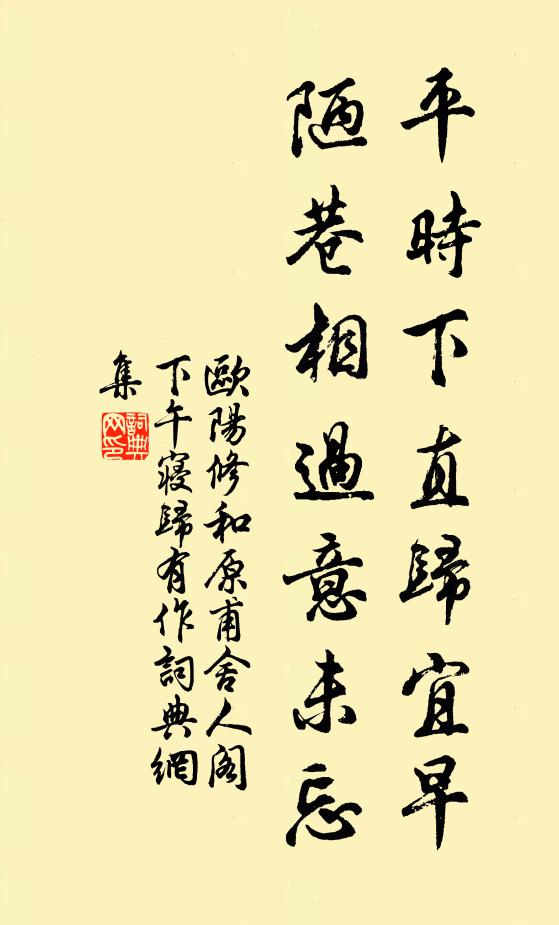 平時下直歸宜早
陋巷相過意未忘
歐陽修和原甫舍人閣
下午寢歸有作詞典網
集
詞典
网印